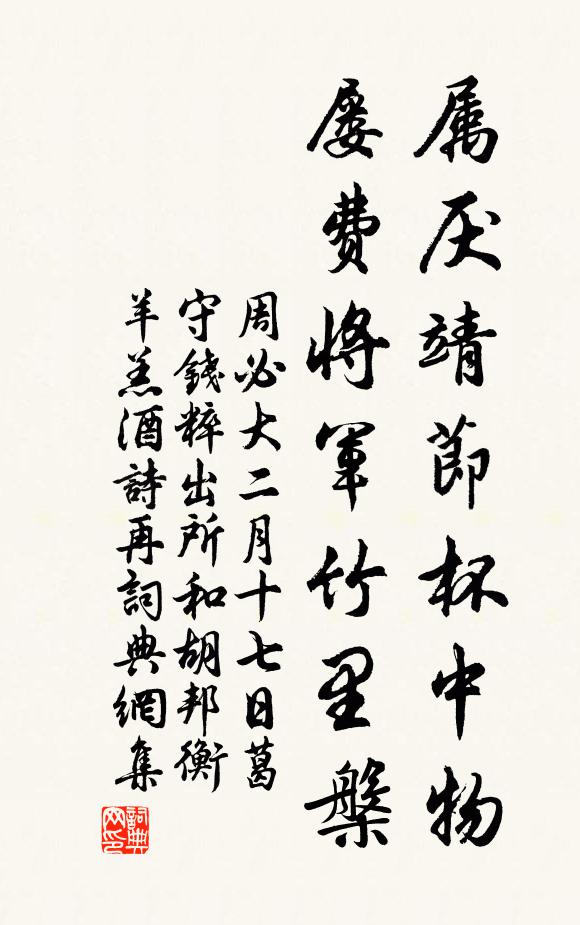 属厌靖節杯中物
屡費將軍竹里槃
周必大二月十七日葛
守錢粹出所和胡邦衡
羊羔酒詩再詞典網集
詞典网印